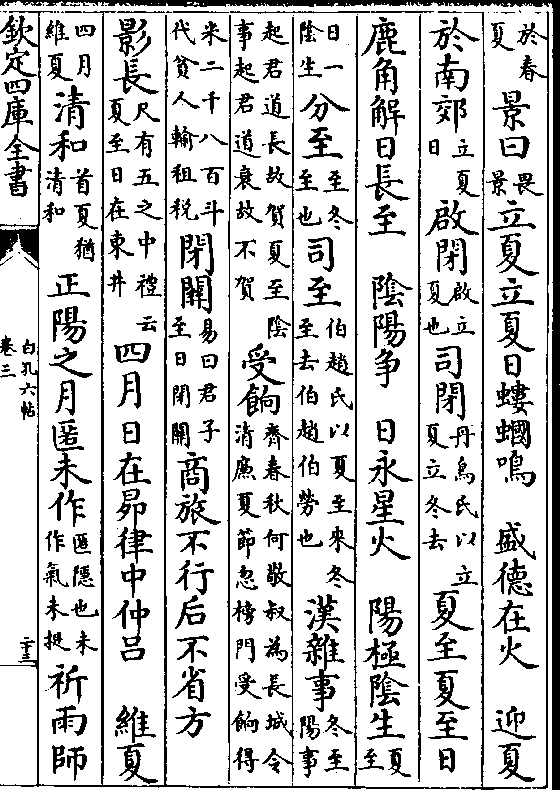 於春夏　景曰畏景立夏立夏日螻蟈鳴　盛德在火　迎夏
於南郊立夏日啟閉啟立夏也司閉丹鳥氏以立夏立冬去夏至夏至日
鹿角解日長至　陰陽争　日永星火　陽極陰生夏至
日一陰生分至至冬至也司至伯趙氏以夏至來冬至去伯趙伯勞也漢雜事冬至陽事
起君道長故賀夏至陰事起君道衰故不賀　受餉齊春秋何敬叔為長城令清廉夏節忽榜門受餉得
米二千八百斗代貧人輸租税閉關易曰君子至日閉關商旅不行后不省方
影長尺有五之中禮云夏至日在東井四月日在昴律中仲呂　維夏
四月維夏清和首夏猶清和　正陽之月匿未作匿隱也未作氣未挺祈雨師
欽定四庫全書
白孔六帖
卷三
二十三